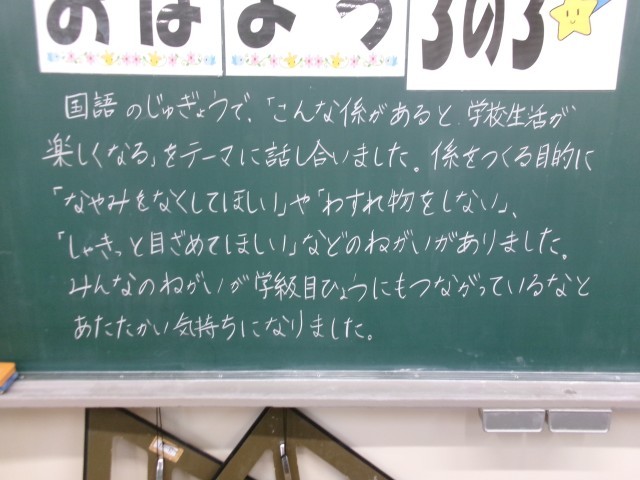 おはよう 3の3
国語のじゅぎょうで、「こんな係があると、学校生活が
楽しくなる」をテーマに話し合いました。係をつくる目的に
「なやみをなくしてほしい」や「わすれ物をしない」、
「しゃきっと目ざめてほしい」などのねがいがありました。
みんなのねがいが学級目ひょうにもつながっているなと
あたたかい気持ちになりました。